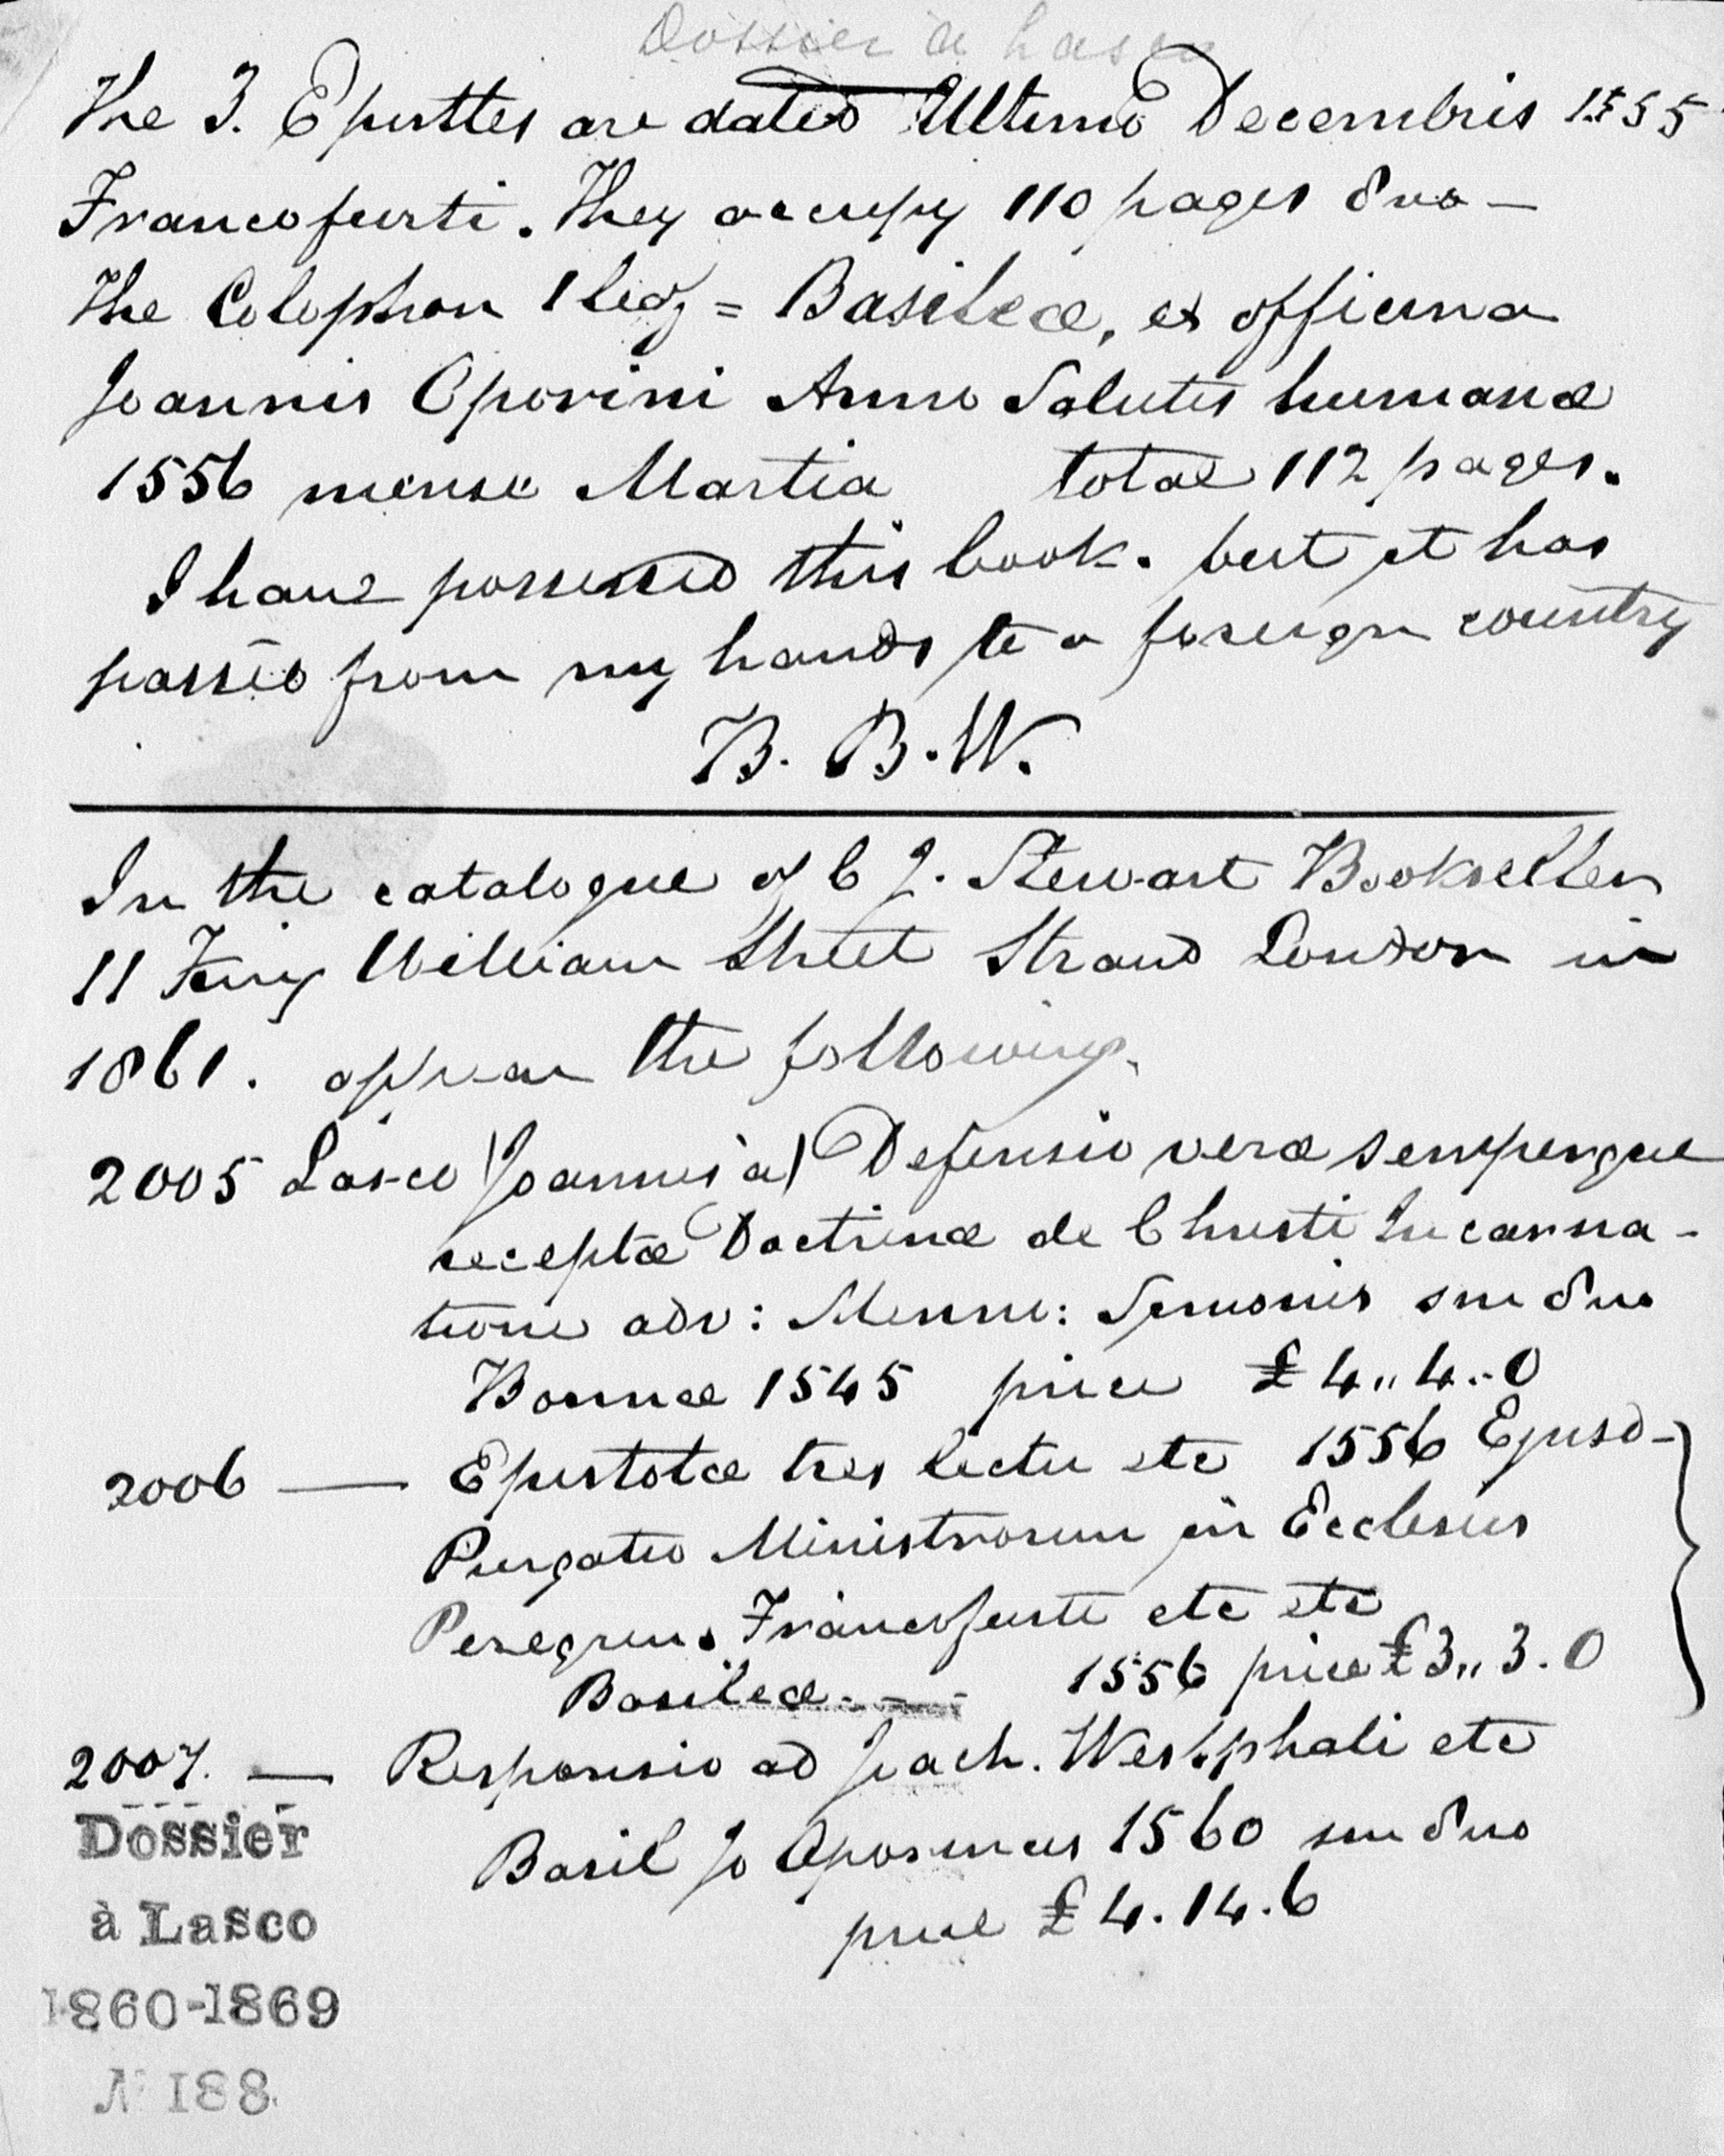 Dossier a Lasco
The 3. Epistles are dated Ultimo Decembris 1555
Francofurti. They occupy 110 pages 8vo —
The Colophon 1 leaf = Basileæ, ex officina
Joannis Oporini Anno Salutis humanæ
1556 mense Martia total 112 pages.
I have possessed this book. but it has
passed from my hands to a foreign country
B. B. W.
In the catalogue of C J. Stewart Bookseller
11 King William Street Strand London in
1861. appear the following.
2005 Lasco (Joannis à) Defensio veræ semperque
receptæ Doctrinæ de Christi Incarna-
tione adv: Menno: Simonis sm 8vo
Bonnæ 1545 price £4„4..0
2006 — Epistolæ tres lectu etc 1556 Ejusd-
Purgatio Ministrorum in Ecclesiis
Peregrin. Francofurti etc etc
Basileæ - - - 1556 price £3„3.0
2007. — Responsio ad Joach. Westphali etc
Basil Jo Oporinus 1560 sm 8vo
price £4.14.6
Dossier
à Lasco
1860-1869
N 188